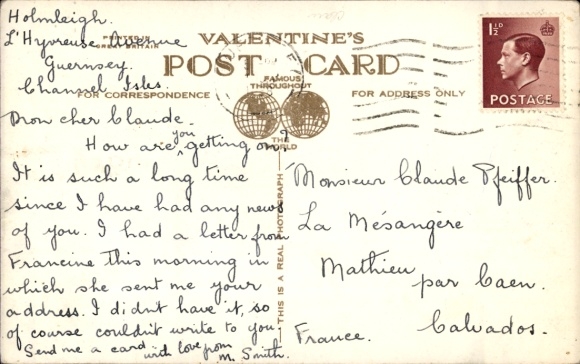 Holmleigh.
L'Hyvreuse Avenue
Guernsey.
Channel Isles.
PRINTED IN
GREAT BRITAIN
VALENTINE'S
POST CARD
FAMOUS
THROUGHOUT
THE
WORLD
FOR CORRESPONDENCE
FOR ADDRESS ONLY
1½D
POSTAGE
Mon cher Claude.
How are you getting on?
It is such a long time
since I have had any news
of you. I had a letter from
Francine this morning in
which she sent me your
address. I didn't have it, so
of course couldn't write to you.
Send me a card with love from
M. Smith.
THIS IS A REAL PHOTOGRAPH
Monsieur Claude Pfeiffer.
La Mésangère
Mathieu par Caen.
Calvados.
France.